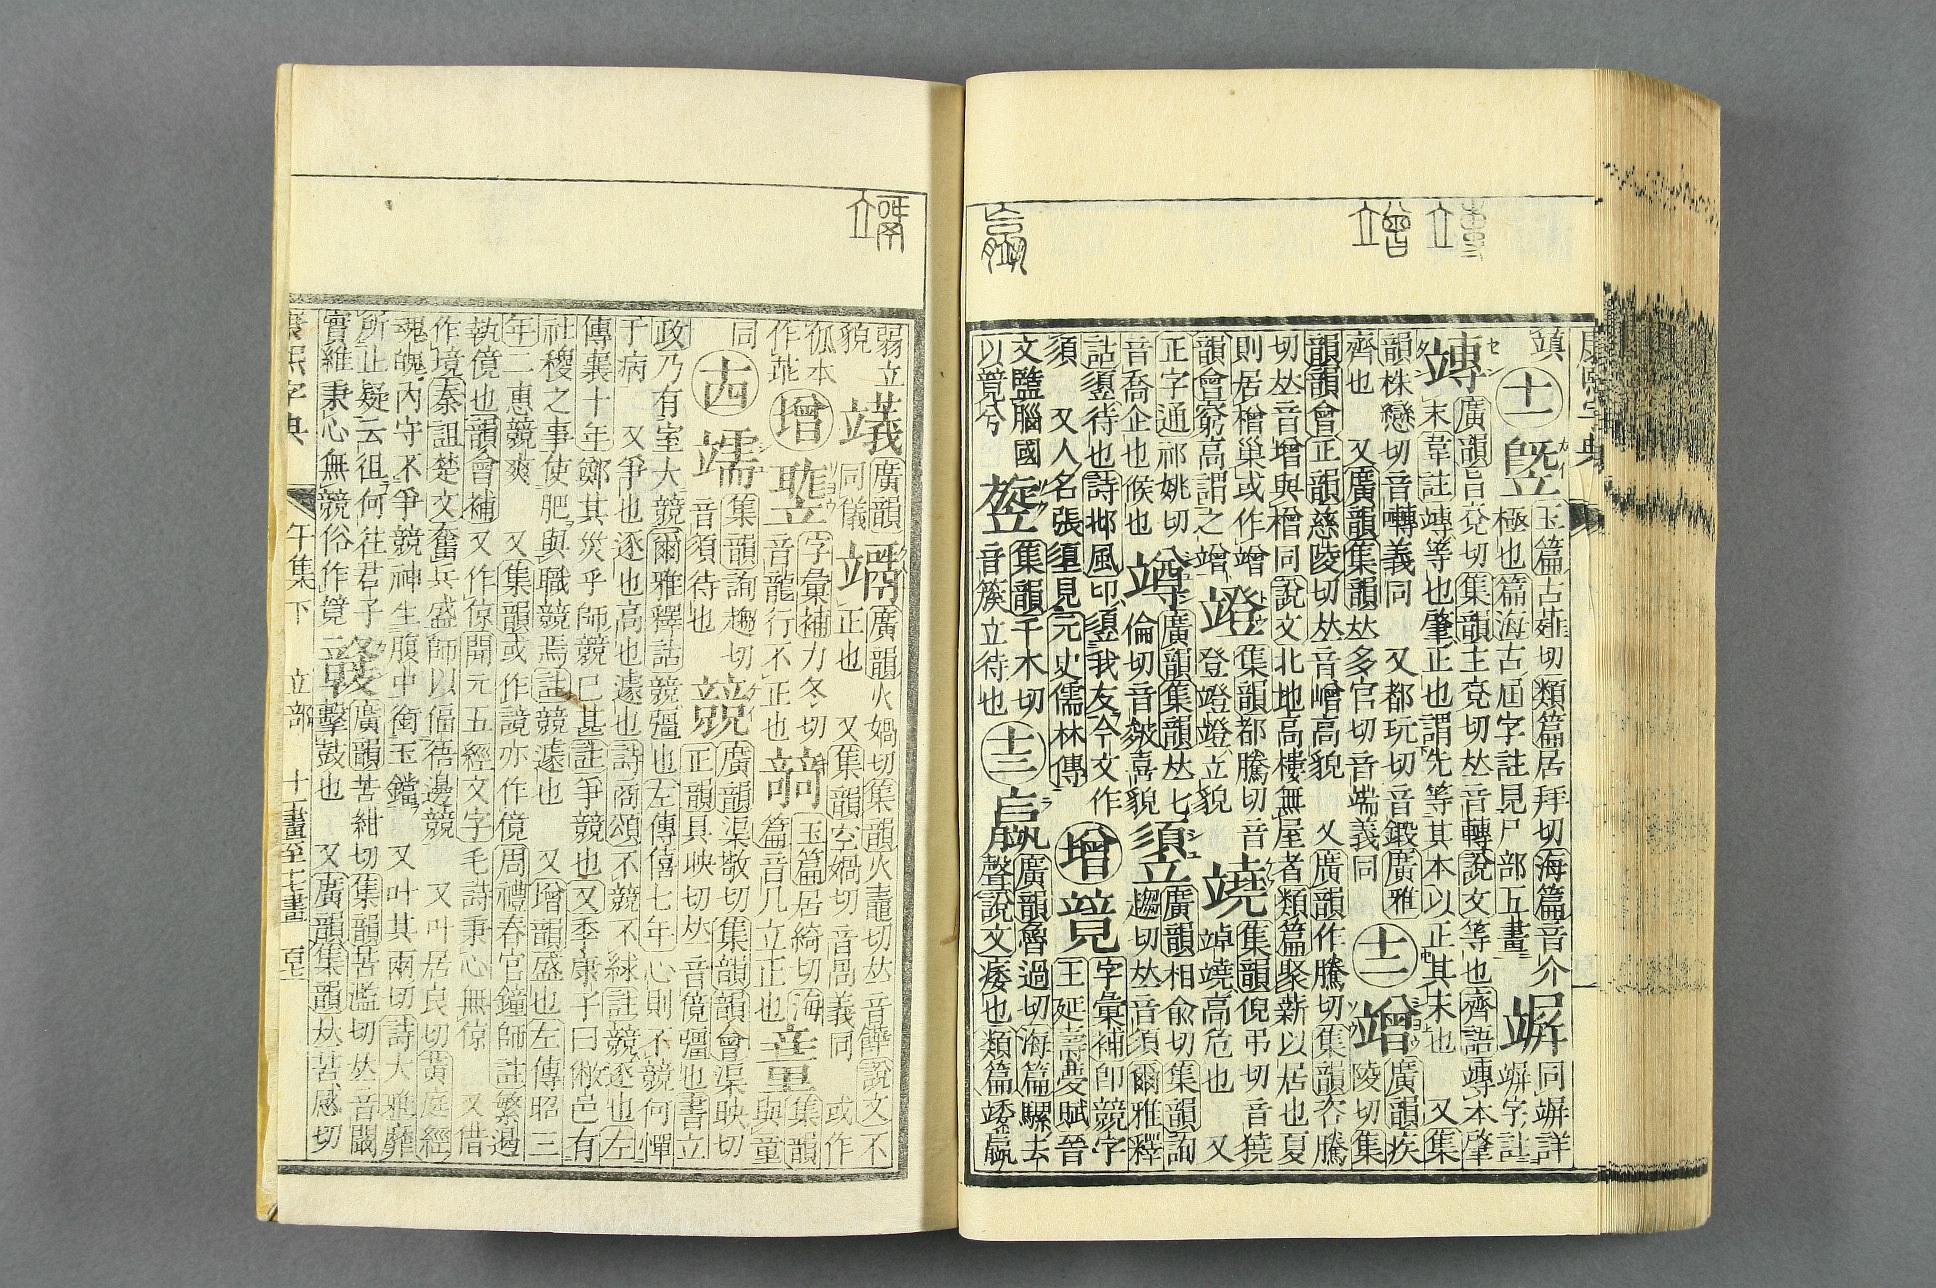 康熙字典
十一
玉篇古薤切類篇居拜切海篇音介極也篇海古屆字註見尸部五畫
竱 廣韻旨兗切集韻主兗切𠀤音轉說文等也齊語竱本肇末韋註竱等也肇正也謂先等其本以正其末也 又集
韻株戀切音囀義同 又都玩切音鍛廣雅齊也 又廣韻集韻𠀤多官切音端義同 十二 竲 廣韻疾陵切集
韻韻會正韻慈陵切𠀤音嶒高貌 又廣韻作騰切集韻咨騰切𠀤音增與橧同說文北地高樓無屋者類篇聚薪以居也夏
則居橧巢或作竲韻會窮高謂之竲 竳 集韻都騰切音登竳竳立貌 集韻倪弔切音獟 高危也 又
正字通祁姚切音喬企也候也 竴 廣韻集韻𠀤七倫切音皴喜貌 廣韻相俞切集韻詢趨切𠀤音須爾雅釋
詁 待也詩邶風卬 我友今文作須 又人名張 見元史儒林傳 增 竟 字彙補卽競字王延壽夢賦晉
文盬腦國以竟兮 集韻千木切音簇立待也 十三 廣韻魯過切海篇騾去聲說文痿也類篇
弱立貌 廣韻同儀 廣韻火媧切集韻火鼃切𠀤音 說文不正也 又集韻空媧切音咼義同 或作
孤本作 增 字彙補力冬切音龍行不正也 玉篇居綺切海篇音几立正也 集韻與童
同 十四 集韻詢趨切音須待也 競 廣韻渠敬切集韻韻會渠映切正韻具映切𠀤音傹彊也書立
政乃有室大競爾雅釋詁競彊也左傳僖七年心則不競何憚于病 又爭也逐也高也遽也詩商頌不競不絿註競逐也左
傳襄十年鄭其災乎師競已甚註爭競也又季康子曰敝邑有社稷之事使肥與職競焉註競遽也 又增韻盛也左傳昭三
年二惠競爽 又集韻或作誩亦作傹周禮春官鐘師註繁遏執傹也韻會補又作倞開元五經文字毛詩秉心無倞 又借
作境秦詛楚文奮兵盛師以偪俉邊競 又叶居良切黃庭經魂魄內守不爭競神生腹中銜玉鐺 又叶其兩切詩大雅靡
所止疑云徂何往君子實維秉心無競俗作竸 廣韻苦紺切集韻苦濫切𠀤音闞擊鼓也 又廣韻集韻𠀤苦感切
康熙字典 午集下 立部